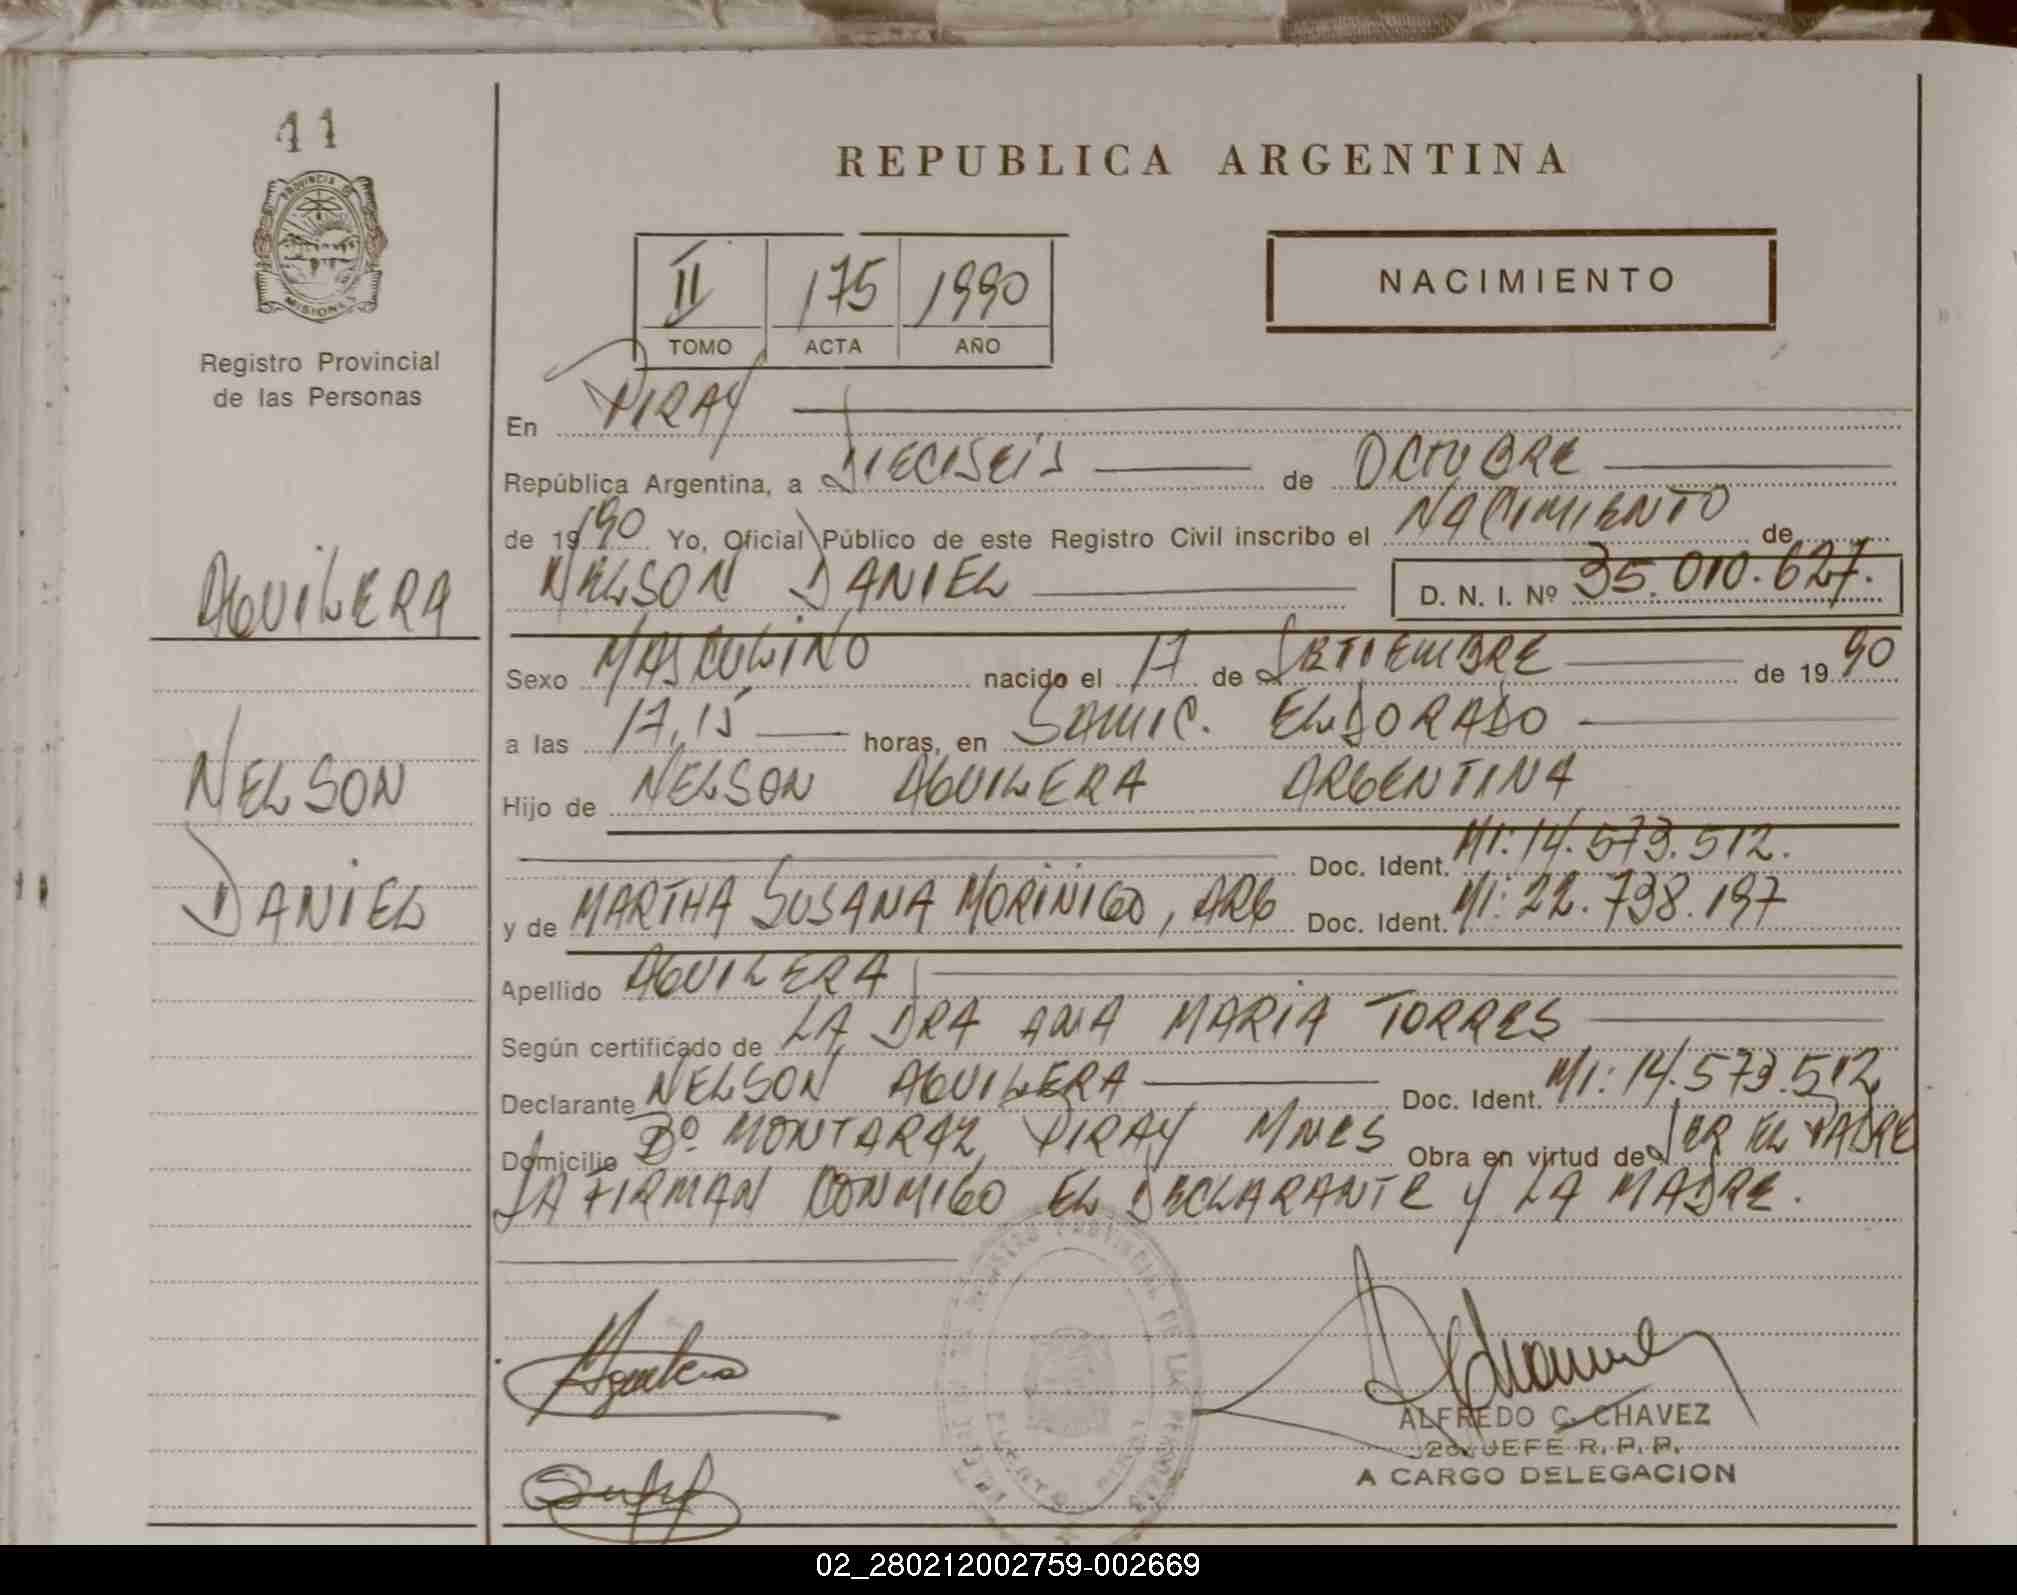 11
PROVINCIA DE
MISIONES
Registro Provincial
de las Personas
AGUILERA
NELSON
DANIEL
REPUBLICA ARGENTINA
II 175 1990
TOMO ACTA AÑO
NACIMIENTO
En PIRAY
República Argentina, a DIECISEIS de OCTUBRE
de 19 90 Yo, Oficial Público de este Registro Civil inscribo el NACIMIENTO de
NELSON DANIEL D. N. I. Nº 35.010.627.
Sexo MASCULINO nacido el 17 de SETIEMBRE de 19 90
a las 17,15 horas, en SAMIC. ELDORADO
Hijo de NELSON AGUILERA ARGENTINA
Doc. Ident. MI: 14.573.512.
y de MARTHA SUSANA MORINIGO, ARG Doc. Ident. MI: 22.738.197
Apellido AGUILERA
Según certificado de LA DRA ANA MARIA TORRES
Declarante NELSON AGUILERA Doc. Ident. MI: 14.573.512
Domicilio Bº MONTARAZ, PIRAY MNES Obra en virtud de SER EL PADRE
LA FIRMAN CONMIGO EL DECLARANTE Y LA MADRE.
REGISTRO PROVINCIAL DE LAS PERSONAS
ALFREDO C. CHAVEZ
2do JEFE R. P. P.
A CARGO DELEGACION
02_280212002759-002669